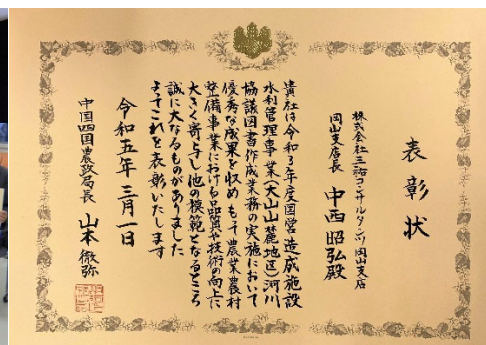 表彰状
株式会社三祐コンサルタンツ岡山支店
岡山支店長 中西昭弘殿
貴社は令和3年度国営造成施設
水利管理事業(大山山麓地区)河川
協議図書作成業務の実施において
優秀な成果を収め もって農業農村
整備事業における品質や技術の向上に
大きく寄与し他の模範となるところ
誠に大なるものがありました
よってこれを表彰いたします
令和五年三月一日
中国四国農政局長 山本徹弥